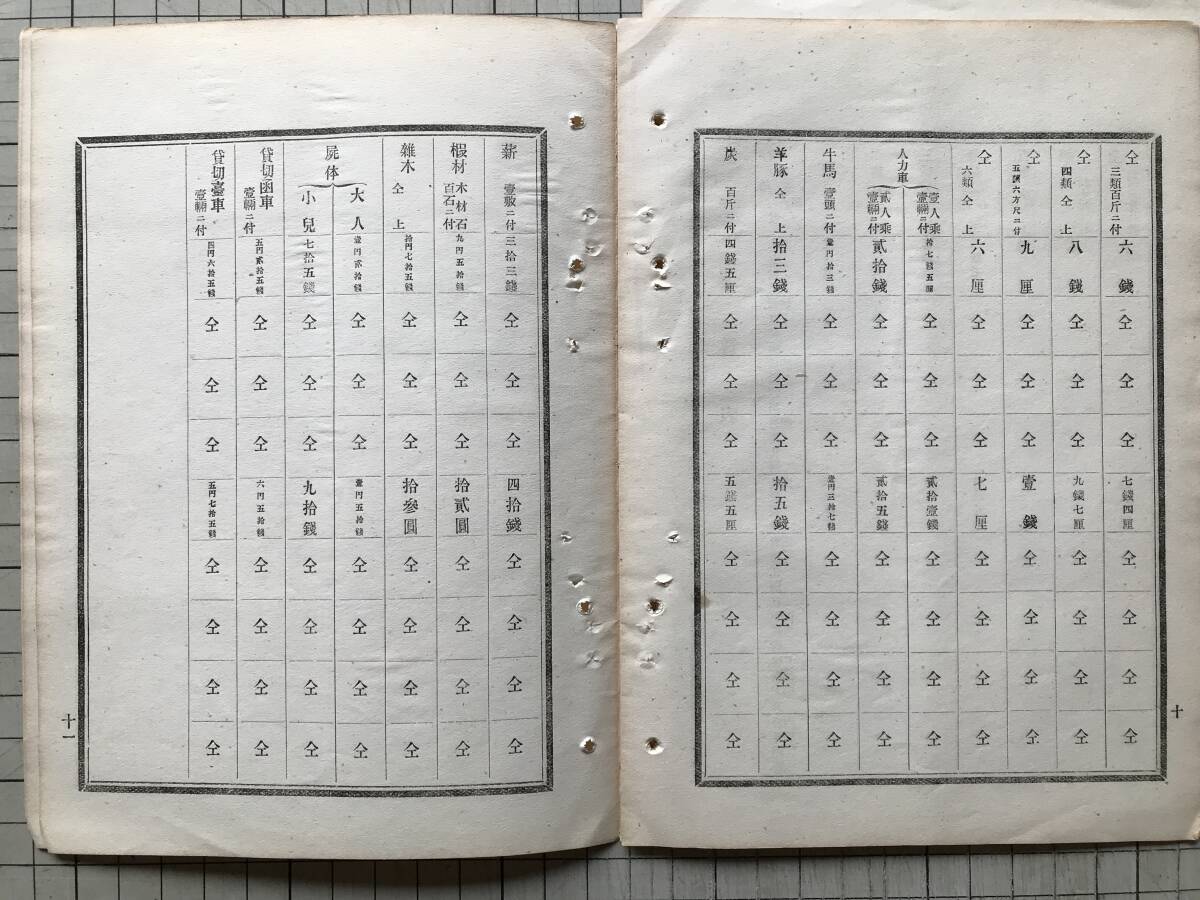 仝 三類百斤ニ付 六錢 仝 仝 仝 七錢四厘 仝 仝 仝 仝
仝 四類仝上 八錢 仝 仝 仝 九錢七厘 仝 仝 仝 仝
仝 五類六方尺ニ付 九厘 仝 仝 仝 壹錢 仝 仝 仝 仝
仝 六類仝上 六厘 仝 仝 仝 七厘 仝 仝 仝 仝
人力車
壹人乘壹輛ニ付 拾七錢五厘 仝 仝 仝 貳拾壹錢 仝 仝 仝 仝
貳人乘壹輛ニ付 貳拾錢 仝 仝 仝 貳拾五錢 仝 仝 仝 仝
牛馬 壹頭ニ付 壹円拾三錢 仝 仝 仝 壹円三拾七錢 仝 仝 仝 仝
羊豚 仝上 拾三錢 仝 仝 仝 拾五錢 仝 仝 仝 仝
炭 百斤ニ付 四錢五厘 仝 仝 仝 五錢五厘 仝 仝 仝 仝
十
薪 壹敷ニ付 三拾三錢 仝 仝 仝 四拾錢 仝 仝 仝 仝
椴材 木材石百石ニ付 九円五拾錢 仝 仝 仝 拾貳圓 仝 仝 仝 仝
雜木 仝上 拾円七拾五錢 仝 仝 仝 拾參圓 仝 仝 仝 仝
屍体
大人 壹円貳拾錢 仝 仝 仝 壹円五拾錢 仝 仝 仝 仝
小兒 七拾五錢 仝 仝 仝 九拾錢 仝 仝 仝 仝
貸切函車 壹輛ニ付 五円貳拾五錢 仝 仝 仝 六円五拾錢 仝 仝 仝 仝
貸切臺車 壹輛ニ付 四円六拾五錢 仝 仝 仝 五円七拾五錢 仝 仝 仝 仝
十一